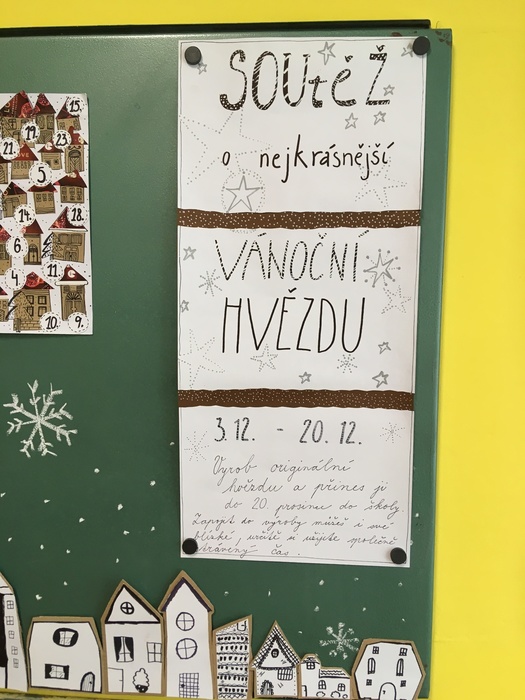 SOUtěŽ
o nejkrásnější
VÁNOČNÍ
HVĚZDU
3.12. - 20.12.
Vyrob originální
hvězdu a přines ji
do 20. prosince do školy.
Zapojit do výroby můžeš i své
blízké, určitě si užijete společně
strávený čas.
15.
19.
23.
21.
5.
14.
18.
6.
11.
4.
10.
9.